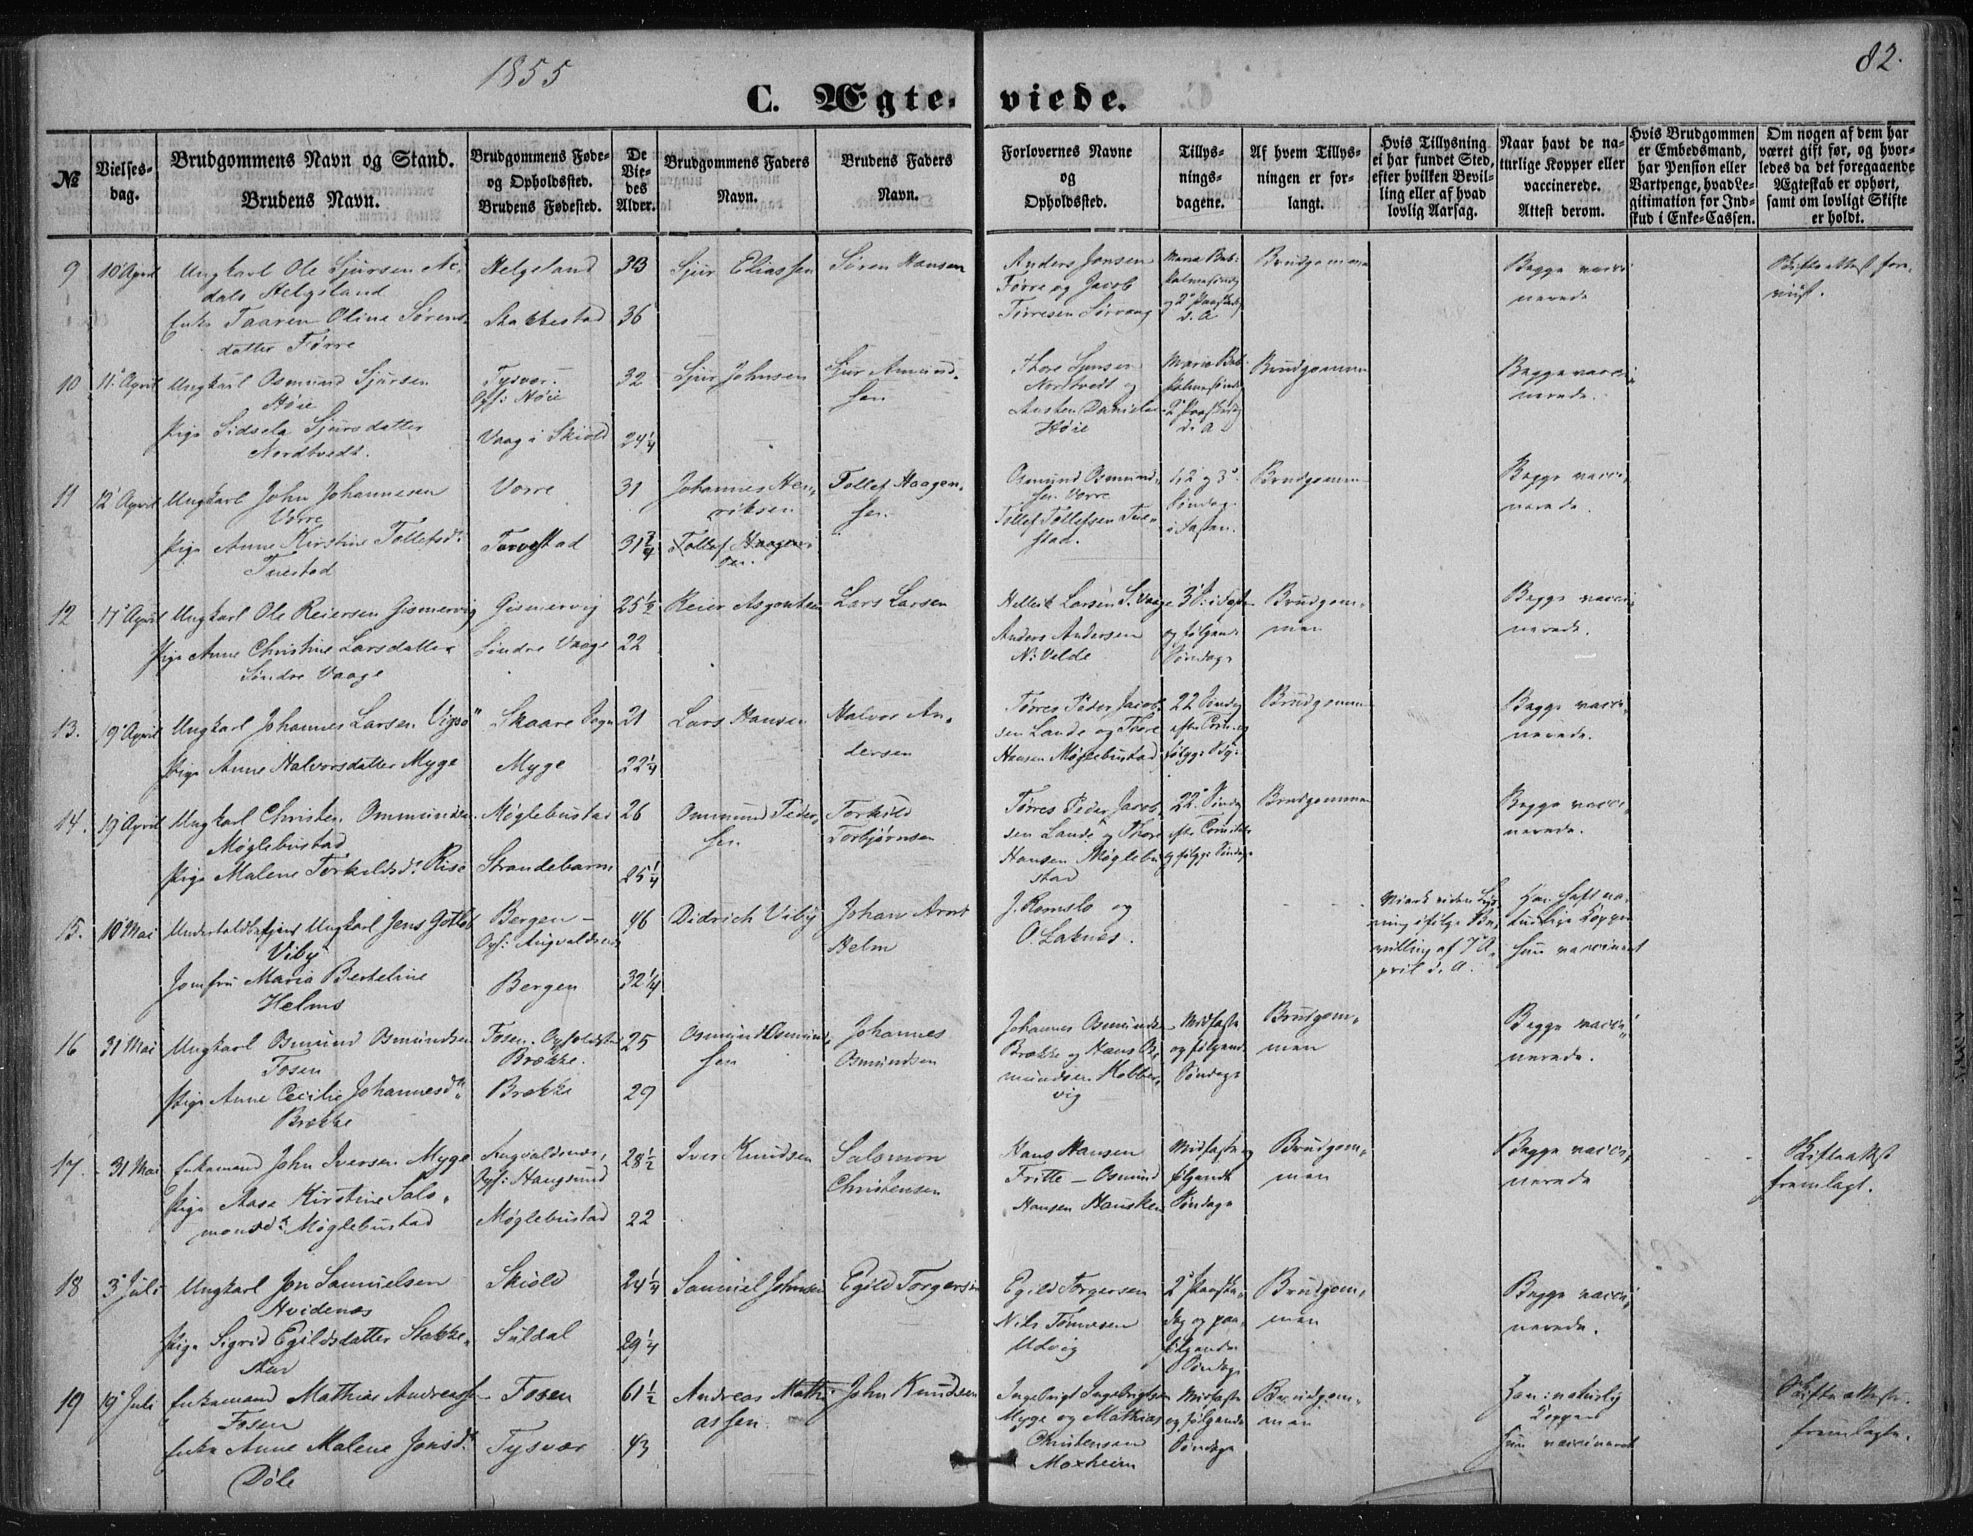 1855
82.
C. Ægte-viede.
№
Vielses-dag.
Brudgommens Navn og Stand.
Brudens Navn.
Brudgommens Føde- og Opholdssted.
Brudens Fødested.
De Vie-des Alder.
Brudgommens Faders Navn.
Brudens Faders Navn.
Forlovernes Navne og Opholdssted.
Tillys-nings-dagene.
Af hvem Tillys-ningen er for-langt.
Hvis Tillysning ei har fundet Sted, efter hvilken Bevil-ling eller af hvad lovlig Aarsag.
Naar havt de na-turlige Kopper eller vaccinerede. Attest derom.
Hvis Brudgommen er Embedsmand, har Pension eller Vartpenge, hvad Le-gitimation for Ind-skud i Enke-Cassen.
Om nogen af dem har været gift før, og hvor-ledes da det foregaaende Ægteskab er ophørt, samt om lovligt Skifte er holdt.
9 10 April Ungkarl Ole Sjursen
Helgeland
Enke Taaren Oline Sørens-datter Førre
Helgeland 33
Stakkestad 36
Sjur Eliassen Søren Hansen
Anders Jansen
Førre og Jacob
Tørresen Sørvaag
Maria Beb.
Palmesøndg
og 2 Paaskedg
d. A
Brudgommen
Begge vacci
nerede
Skifteattest fore-
viist.
10 11 April Ungkarl Osmund Sjursen
Høie
Pige Sidsela Sjursdatter
Nordtvedt.
Tysvær.
Oph: Høie 32
Vaag i Skiold 24 1/4
Sjur Johnsen Sjur Amund-
sen
Thore
Nordtvedt og
Austen Daniels
Høie
Maria Beb.
Palmesøndg
2 Paaskedg
d. A
Brudgommen
Begge vacci-
nerede.
11 12 April Ungkarl John Johannesen
Vorre
Pige Anne Kirstine Tollefsd.
Tuestad
Vorre 31
Torvestad 31 3/4
Johannes Hen-
riksen
Tollef Haagen-
sen.
Tollef Haagen
sen.
Osmund Osmund-
sen Vorre
Tollef Tollefsen Tue-
stad.
1, 2 og 3
Søndag
i Fasten.
Brudgommen
Begge vacci-
nerede.
12 17 April Ungkarl Ole Reiersen Gismervig
Pige Anne Christine Larsdatter
Søndre Vaage
Gismervig 25 1/2
Søndre Vaage 22
Reier Asgautsen Lars Larsen
Hellick Larsen S. Vaage
Anders Andersen
N: Velde
3 S: i Fasten
og følgende
Søndage
Brudgom-
men
Begge vacci
nerede.
13. 19 April Ungkarl Johannes Larsen Vigsø
Pige Anne Halvorsdatter Myge
Skaare Sogn 21
Myge 22 1/4
Lars Hansen Halvor An-
dersen
Tørres Peder Jacob-
sen Lande og Thore
Hansen Møglebustad
22 Søndg
efter Trinit. og
følgge Sdg:
Brudgommen
Begge vacci-
nerede.
14. 19 April Ungkarl Christen Ommundsen
Møglebustad
Pige Malene Torkildsd. Risø
Møglebustad 26
Strandebarm 25 1/4
Ommund Peder-
sen.
Torkild
Torbjørnsen
Tørres Peder Jacob
sen Lande og Thore
Hansen Møglebu
stad
22 Søndg
efter Trinitatis
og følgge Søndage
Brudgommen
Begge vacci-
nerede.
15. 10 Mai Undertoldbetjent Ungkarl Jens Gotleb
Viby
Jomfru Maria Berteline
Helms
Bergen -
Oph: Augvaldsnes 46
Bergen 32 1/4
Didrich Viby Johan Arnt
Helm
J. Romslo og
O. Laknes.
Viede uden Lys-
ning ifølge Be-
villing af 7 A-
pril d. A.
Han havt na-
turlige Kopper
hun vaccineret
16 31 Mai Ungkarl Osmund Osmundsen
Fosen
Pige Anne Cecilie Johannesd.
Brække
Fosen. Opholdsted
Brække. 25
Brække 29
Osmund Osmund-
sen
Johannes
Osmundsen
Johannes Osmundsen
Brække og Hans Os-
mundsen Kobber-
vig
Midfaste
og følgende
Søndage
Brudgom-
men
Begge vacci-
nerede.
17. 31 Mai Enkemand John Iversen Myge
Pige Aasa Kirstine Salo-
monsd. Møglebustad
Augvaldsnæs,
Oph: Haugsund 28 1/2
Møglebustad 22
Iver Knudsen Salomon
Christensen
Hans Hansen
Fritte - Osmund
Hansen Hausken
Midfaste og
følgende
Søndage
Brudgom-
men
Begge vacci-
nerede
Skifteattest
fremlagt.
18 3 Juli Ungkarl Jon Samuelsen
Hvidenæs
Pige Sigrid Egildsdatter Stakke-
stad
Skiold 24 1/4
Suldal 29 1/4
Samuel Johnsen Egild Torgersen
Egild Torgersen
Nils Tommesen
Udvig
2 Paaske-
dag og paa-
følgende
Søndage
Brudgom-
men
Begge vacci-
nerede.
19 19 Juli Enkemand Mathias Andreassen
Fosen
Enke Anne Malene Jonsd.
Døle
Fosen 61 1/2
Tysvær 43
Andreas Mathi-
assen.
John Knudsen
Ingebrigt Ingebrigtsen
Myge og Mathias
Christensen
Moxheim
Midfaste
og følgende
Søndage
Brudgom-
men
Han naturlig
Kopper
hun vaccineret
Skifteattester
fremlagte.